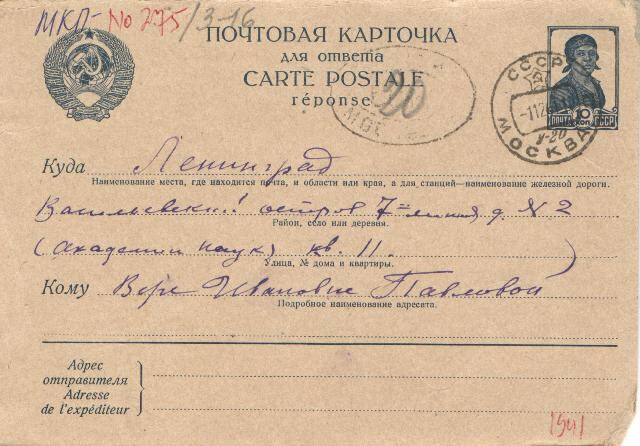 МКП- No 275/3-16
ПОЧТОВАЯ КАРТОЧКА
для ответа
CARTE POSTALE
réponse
20
СССР
МОСКВА
У-20
ПОЧТА 10 СССР
Куда Ленинград
Наименование места, где находится почта, и области или края, а для станций—наименование железной дороги.
Васильевский остров 7=линия д. N 2
Район, село или деревня.
(Академии наук) кв. 11.
Улица, № дома и квартиры.
Кому Вере Ивановне Павловой
Подробное наименование адресата.
Адрес
отправителя
Adresse
de l'expéditeur
1941